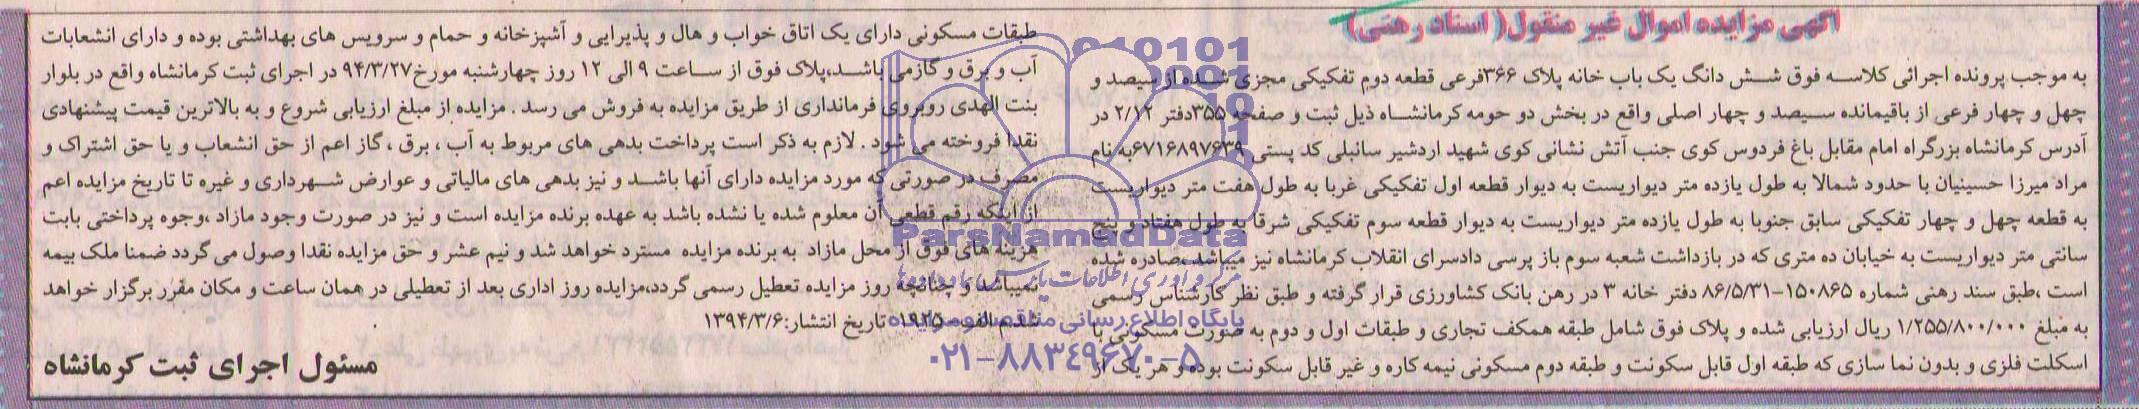 آگهی مزایده اموال غیر منقول( اسناد رهنی)
به موجب پرونده اجرائی کلاسه فوق شش دانگ یک باب خانه پلاک ۳۶۶فرعی قطعه دوم تفکیکی مجزی شده از سیصد و
چهل و چهار فرعی از باقیمانده سیصد و چهار اصلی واقع در بخش دو حومه کرمانشاه ذیل ثبت و صفحه ۳۵۵دفتر ۲/۱۲ در
آدرس کرمانشاه بزرگراه امام مقابل باغ فردوس کوی جنب آتش نشانی کوی شهید اردشیر سانبلی کد پستی ۶۷۱۶۸۹۷۶۳۹به نام
مراد میرزا حسینیان با حدود شمالا به طول یازده متر دیواریست به دیوار قطعه اول تفکیکی غربا به طول هفت متر دیواریست
به قطعه چهل و چهار تفکیکی سابق جنوبا به طول یازده متر دیواریست به دیوار قطعه سوم تفکیکی شرقا به طول هفتاد و پنج
سانتی متر دیواریست به خیابان ده متری که در بازداشت شعبه سوم باز پرسی دادسرای انقلاب کرمانشاه نیز میباشد،صادره شده
است ،طبق سند رهنی شماره ۱۵۰۸۶۵-۸۶/۵/۳۱ دفتر خانه ۳ در رهن بانک کشاورزی قرار گرفته و طبق نظر کارشناس رسمی
به مبلغ ۱/۲۵۵/۸۰۰/۰۰۰ ریال ارزیابی شده و پلاک فوق شامل طبقه همکف تجاری و طبقات اول و دوم به صورت مسکونی با
اسکلت فلزی و بدون نما سازی که طبقه اول قابل سکونت و طبقه دوم مسکونی نیمه کاره و غیر قابل سکونت بوده و هر یک از
طبقات مسکونی دارای یک اتاق خواب و هال و پذیرایی و آشپزخانه و حمام و سرویس های بهداشتی بوده و دارای انشعابات
آب و برق و گازمی باشد،پلاک فوق از ساعت ۹ الی ۱۲ روز چهارشنبه مورخ۹۴/۳/۲۷ در اجرای ثبت کرمانشاه واقع در بلوار
بنت الهدی روبروی فرمانداری از طریق مزایده به فروش می رسد . مزایده از مبلغ ارزیابی شروع و به بالاترین قیمت پیشنهادی
نقدا فروخته می شود . لازم به ذکر است پرداخت بدهی های مربوط به آب ، برق ، گاز اعم از حق انشعاب و یا حق اشتراک و
مصرف در صورتی که مورد مزایده دارای آنها باشد و نیز بدهی های مالیاتی و عوارض شهرداری و غیره تا تاریخ مزایده اعم
از اینکه رقم قطعی آن معلوم شده یا نشده باشد به عهده برنده مزایده است و نیز در صورت وجود مازاد ،وجوه پرداختی بابت
هزینه های فوق از محل مازاد به برنده مزایده مسترد خواهد شد و نیم عشر و حق مزایده نقدا وصول می گردد ضمنا ملک بیمه
نمیباشد و چنانچه روز مزایده تعطیل رسمی گردد،مزایده روز اداری بعد از تعطیلی در همان ساعت و مکان مقرر برگزار خواهد
شد.م الف-۱۹۲۵ تاریخ انتشار:۱۳۹۴/۳/۶
مسئول اجرای ثبت کرمانشاه
ParsNamadData
پایگاه اطلاع رسانی مناقصه و مزایده
۰۲۱-۸۸۳۴۹۶۷۰-۵